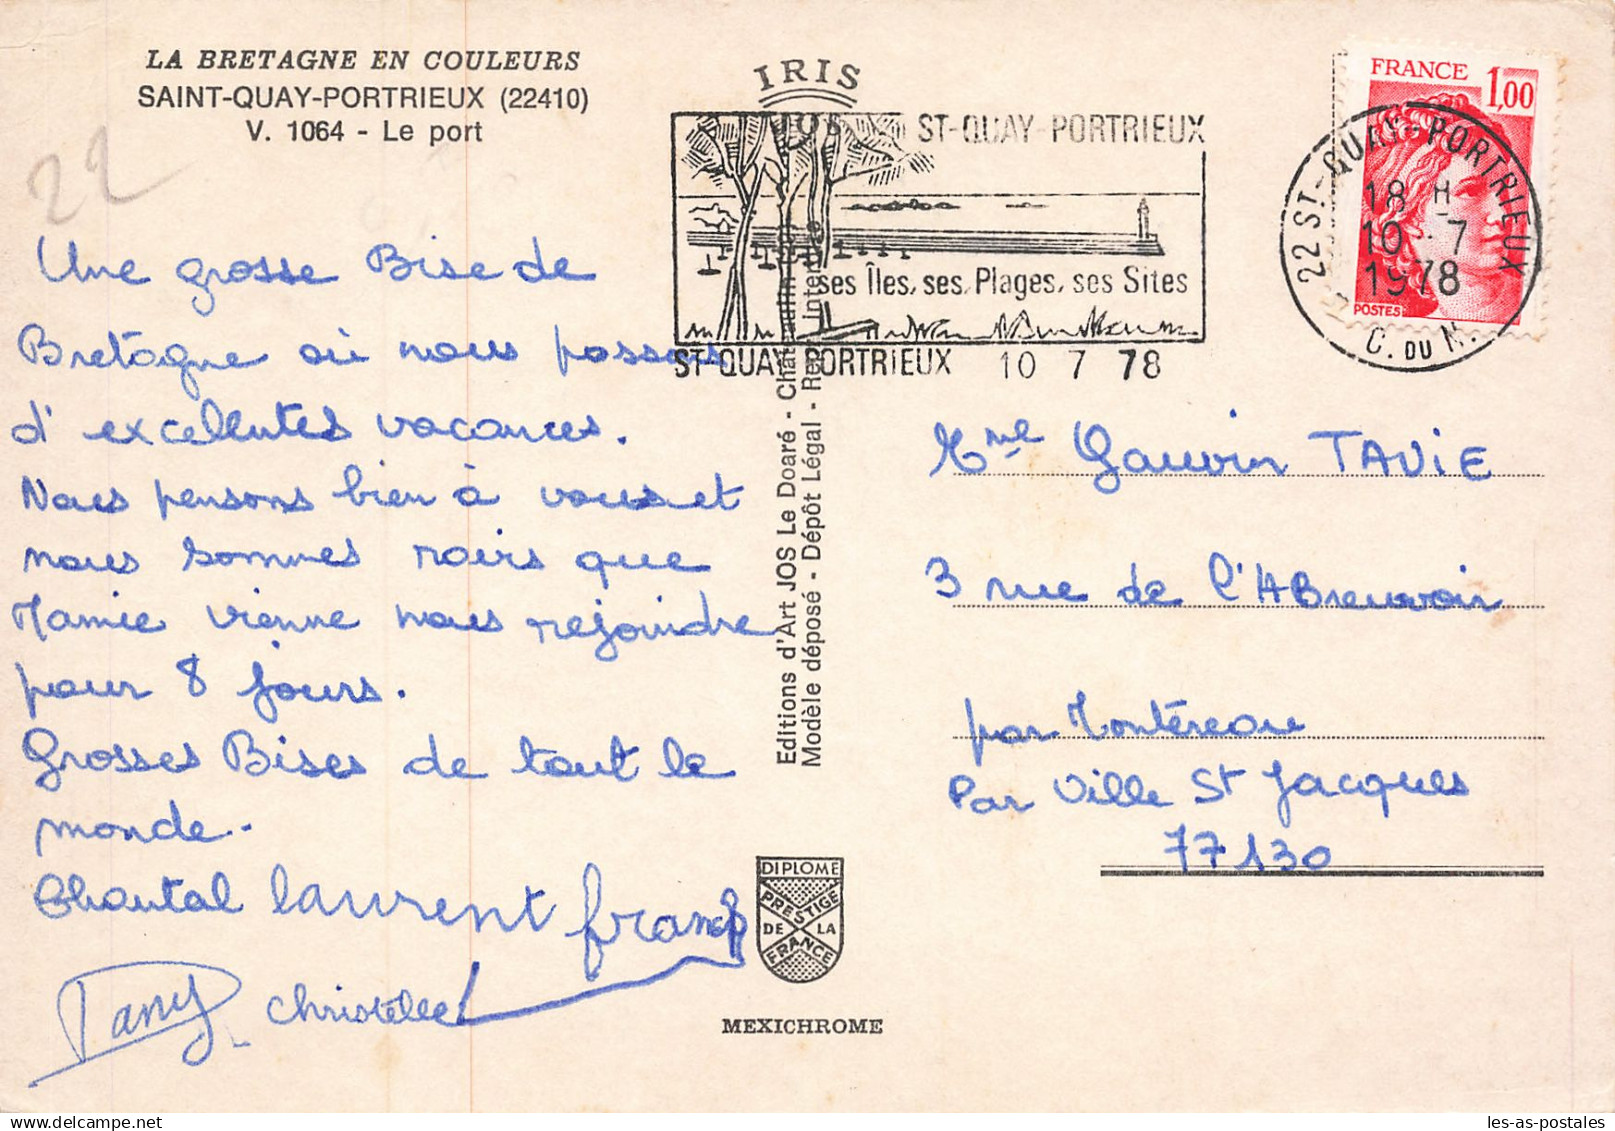 LA BRETAGNE EN COULEURS
SAINT-QUAY-PORTRIEUX (22410)
V. 1064 - Le port
22
Une grosse Bise de
Bretagne où nous passons
d'excellentes vacances.
Nous pensons bien à vous et
nous sommes noirs que
Mamie vienne nous rejoindre
pour 8 jours.
Grosses Bises de tout le
monde.
Chantal laurent franck
Dany christelle
IRIS
JOS
ST-QUAY-PORTRIEUX
ses Îles, ses Plages, ses Sites
ST-QUAY PORTRIEUX 10 7 78
FRANCE 1,00
POSTES
22 ST-QUAY-PORTRIEUX
18 H
10 - 7
1978
C. DU N.
Editions d'Art JOS Le Doaré - Châteaulin
Modèle déposé - Dépôt Légal - Rep. Interdite
Mme Gauvin TAVIE
3 rue de l'ABreuvoir
par Montéreau
Par Ville St Jacques
77130
DIPLOME
PRESTIGE
DE LA
FRANCE
MEXICHROME
les-as-postales